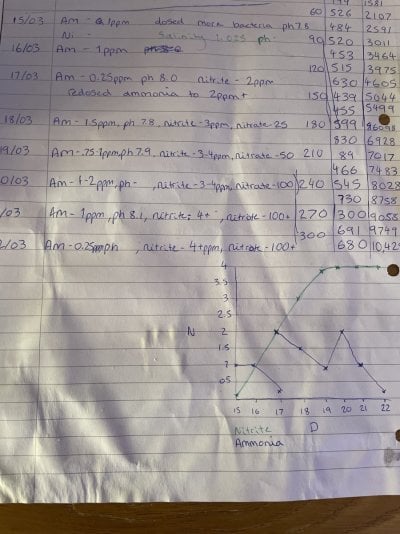 15/03 Am - 1ppm dosed more bacteria ph 7.8
Ni - Salinity 1.025 ph -
16/03 Am - 1ppm
17/03 Am - 0.25ppm ph 8.0 nitrite - 2ppm
redosed ammonia to 2ppm+
18/03 Am - 1.5ppm, ph 7.8, nitrite - 3ppm, nitrate - 25
19/03 Am - .75-1ppm ph 7.9, nitrite - 3-4ppm, nitrate - 50
0/03 Am - 1-2ppm, ph - , nitrite - 3-4ppm, nitrate - 100
/03 Am - 1ppm, ph 8.1, nitrite: 4+ , nitrate - 100+
2/03 Am - 0.25ppm ph , nitrite - 4+ppm, nitrate - 100+
1581
60 526 2107
484 2591
90 520 3011
453 3464
120 515 3975
630 4605
150 439 5044
455 5499
180 599 6098
830 6928
210 89 7017
466 7483
240 545 8028
730 8758
270 300 9058
691 9749
300 680 10,429
4
3.5
3
2.5
N 2
1.5
1
0.5
15 16 17 18 19 20 21 22
Nitrite D
Ammonia